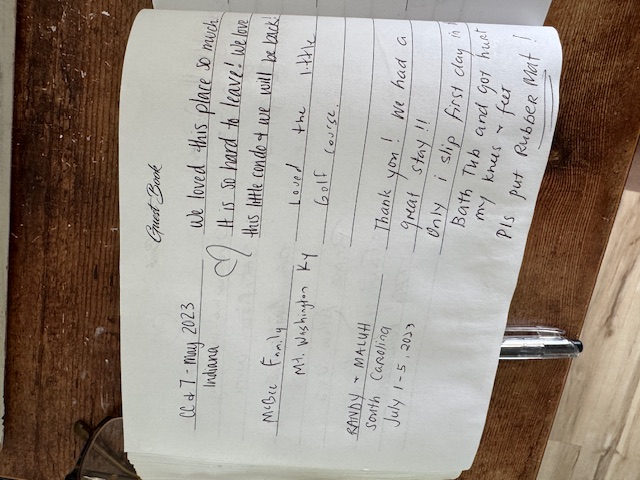 Guest Book
CC & T - May 2023
Indiana
We loved this place so much.
It is so hard to leave! We love
this little condo & we will be back!
McBee Family
Mt. Washington Ky
Loved the little
Golf course.
RANDY & MALUH
South Carolina
July 1-5, 2023
Thank you! We had a
great stay!!
Only i slip first day in
Bath Tub and got hurt
my knees & feet
Pls put Rubber Mat!